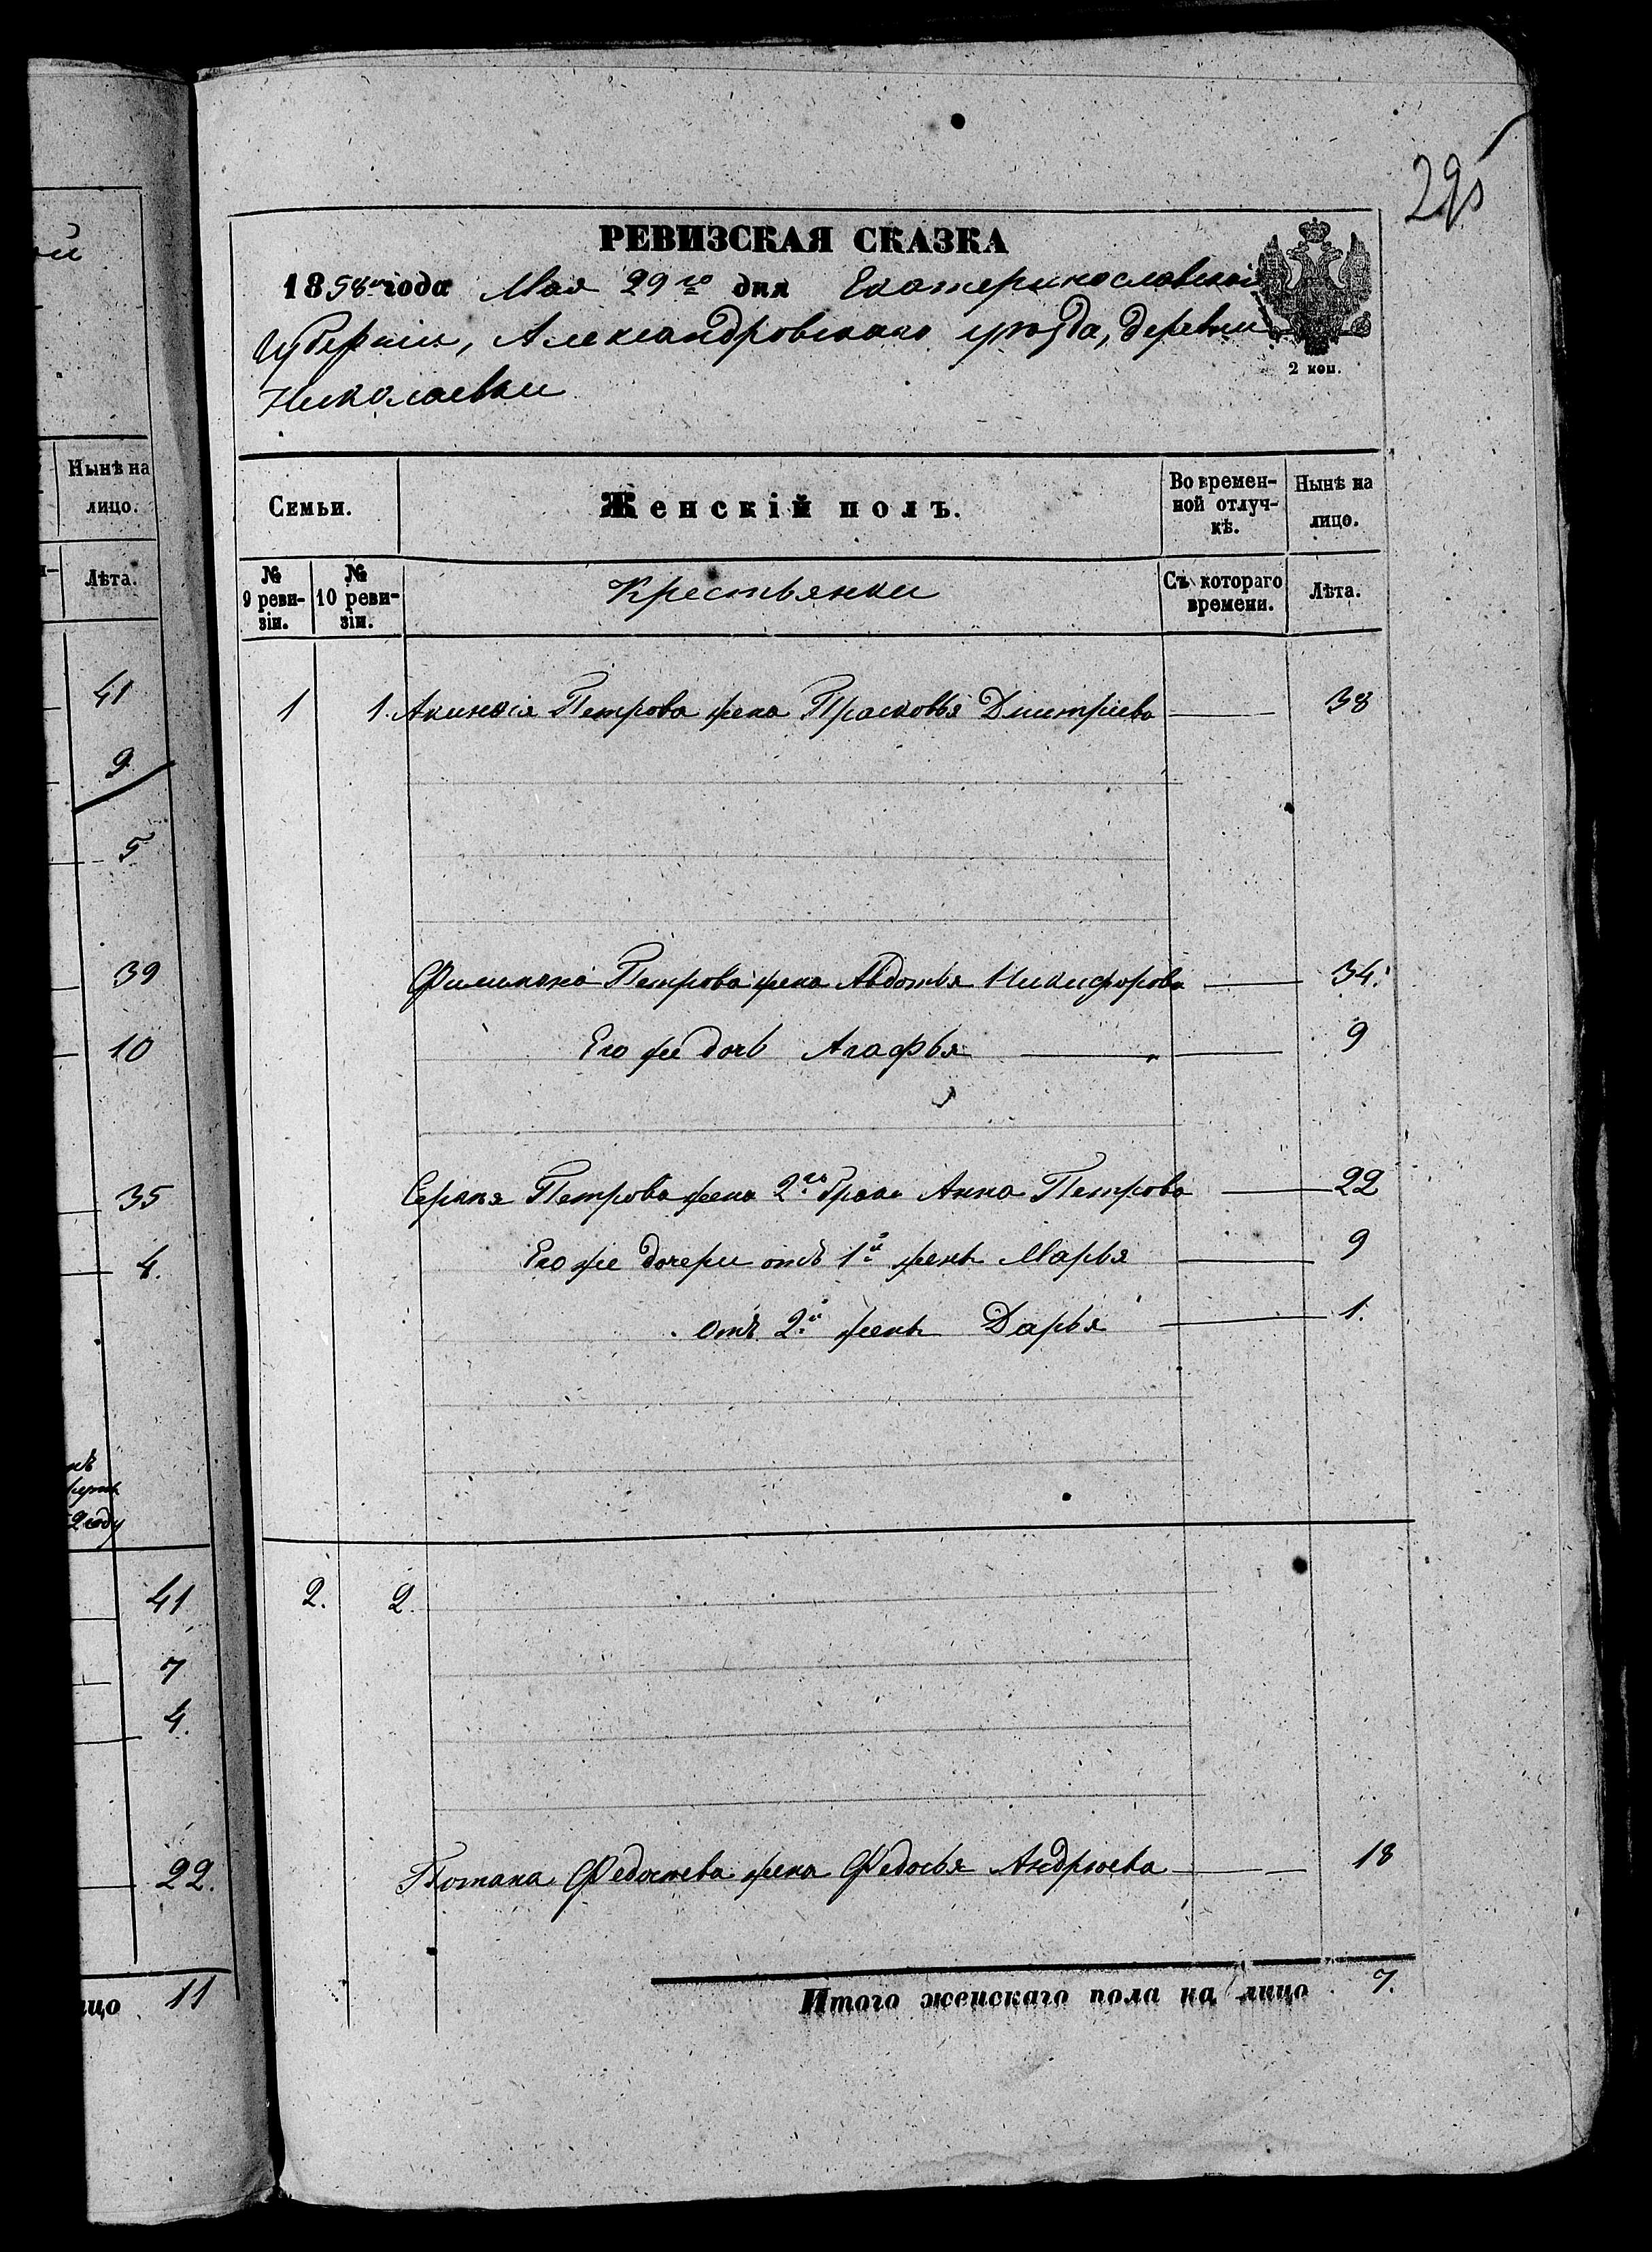 ой
Нынѣ на
лицо.
Лѣта.
41
9
5
39
10
35
4.
2 году
41
7
4.
22.
11
295
РЕВИЗСКАЯ СКАЗКА
1858 года Мая 29го дня Екатеринославской
губерніи, Александровскаго уѣзда, деревни
2 коп.
Николаевки
Семьи.
Женскій полъ.
Во времен-
ной отлуч-
кѣ.
Нынѣ на
лицо.
№
9 реви-
зіи.
№
10 реви-
зіи.
Крестьянки
Съ котораго
времени.
Лѣта.
1 1. Акинфія Петрова жена Прасковья Дмитріева 38
Филипа Петрова жена Авдотья Никифорова 34.
Его же дочь Агафья 9
Сергѣя Петрова жена 2го брака Анна Петрова 22
Его же дочери отъ 1й жены Марья 9
отъ 2й жены Дарья 1.
2. 2.
Потапа Федосѣева жена Федосья Андрѣева 18
Итого женскаго пола на лицо 7.